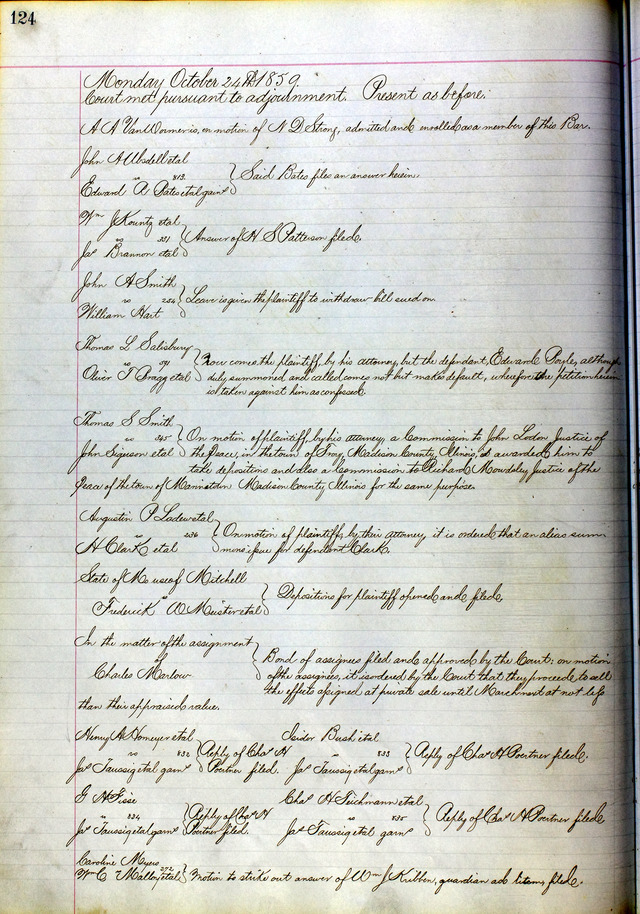 124
Monday October 24th 1859.
Court met pursuant to adjournment. Present as before.
A N VanWormer is, on motion of N D Strong, admitted and enrolled as a member of this Bar.
John A Ubsdell etal
vs 813
Edward A. Bates etal garns
Said Bates files an answer herein.
Wm J Kountz etal
vs 331
Jas Brannon etal
Answer of H S Patterson filed.
John A Smith
vs 254
William Hart
Leave is given the plaintiff to withdraw bill sued on
Thomas L Salisbury
vs
Oliver T Bragg etal
Now comes the plaintiff by his attorney, but the defendant, Edward although
duly summoned and called comes not but makes default, wherefore the petition herein
is taken against him as confessed.
Thomas S Smith
vs 345
John etal
On motion of plaintiff by his attorney, a Commission to John Justice of
the Peace, in the town of Troy, Madison County, Illinois, is awarded him to
take depositions and also a Commission to Richard Justice of the
Peace of the town of Madison County Illinois for the same purpose.
Augustin P Ladew etal
vs 236
H Clark etal
On motion of plaintiffs, by their attorney, it is ordered that an alias sum-
mons issue for defendant Clark.
State of Mo use of Mitchell
vs
Frederick W etal
Depositions for plaintiff opened and filed
In the matter of the assignment
of
Charles Marlow
Bond of assignees filed and approved by the Court: on motion
of the assignees, it is ordered by the Court that they proceed to sell
the effects assigned at private sale until March next at not less
than their appraised value.
Henry A Homeyer etal
vs 832
Jas Taussig etal garns
Reply of Chas H
Poertner filed.
Isidor Bush etal
vs 833
Jas Taussig etal garns
Reply of Chas H Poertner filed.
G H
vs 834
Jas Taussig etal garns
Reply of Chas H
Poertner filed.
Chas H Teichmann etal
vs 835
Jas Taussig etal garns
Reply of Chas H Poertner filed
Caroline Myers
vs 272
Wm C etal
Motion to strike out answer of Wm J Kribben, guardian ad litem, filed.